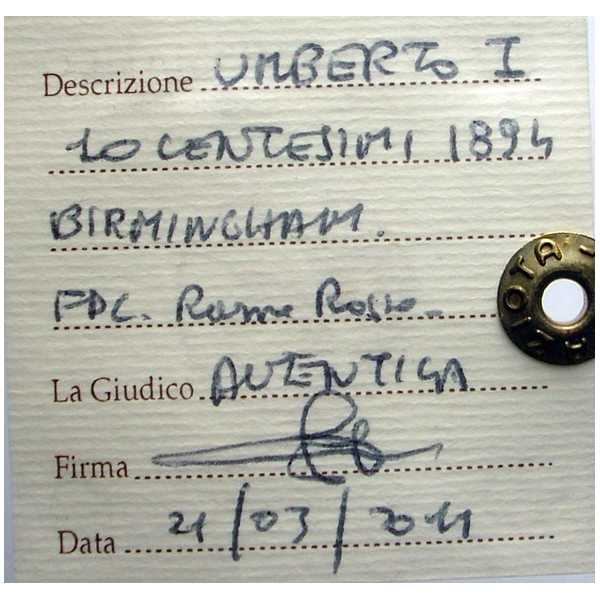 Descrizione UMBERTO I
10 CENTESIMI 1894
BIRMINGHAM.
FDC. Rame Rosso
La Giudico AUTENTICA
Firma
Data 21/03/2011
OTA